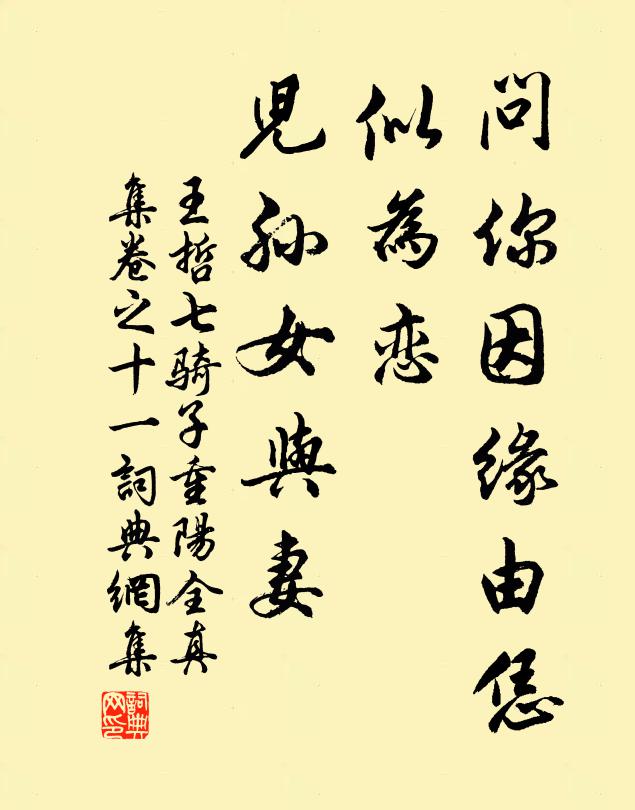 問你因緣由恁
似為恋
児孙女與妻
王哲七骑子重陽全真
集卷之十一詞典網集
詞典
网印